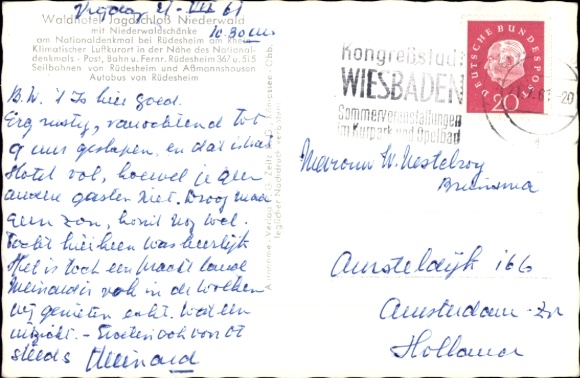 Vrijdag 21-VII 61
10.30 uur
Waldhotel Jagdschloß Niederwald
mit Niederwaldschänke
am Nationaldenkmal bei Rüdesheim am Rhein
Klimatischer Luftkurort in der Nähe des National-
denkmals - Post, Bahn u. Fernr. Rüdesheim 367 u. 515
Seilbahnen von Rüdesheim und Aßmannshausen
Autobus von Rüdesheim
B.W. 't Is hier goed.
Erg rustig, vanochtend tot
9 uur geslapen, en dat is het
Hotel vol, hoewel je geen
andere gasten ziet. Droog maar
geen zon, komt nog wel.
Tocht hierheen was heerlijk
Het is toch een prachtland
Meinard is ook in de wolken
wij genieten echt. Wat een
uitzicht. - Groeten ook van
steeds Meinard
Kongreßstadt
WIESBADEN
Sommerveranstaltungen
im Kurpark und Opelbad
DEUTSCHE BUNDESPOST
20
Mevrouw W. Nestelroy
Bruinsma
Amsteldijk 166
Amsterdam-Zn
Holland